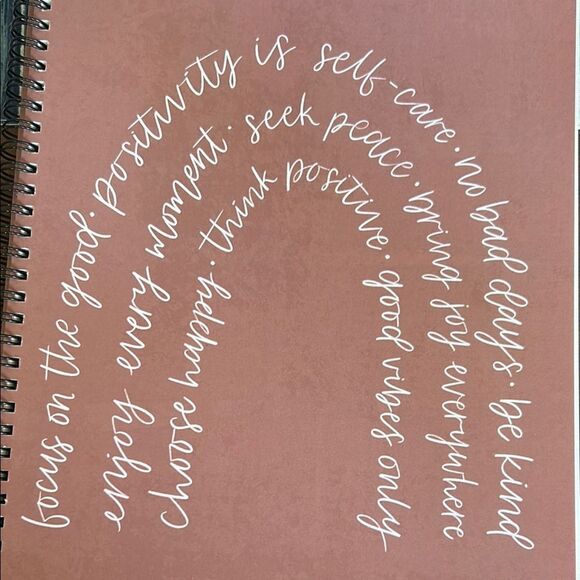 focus on the good · positivity is self-care · no bad days · be kind
enjoy every moment · seek peace · bring joy everywhere
choose happy · think positive · good vibes only